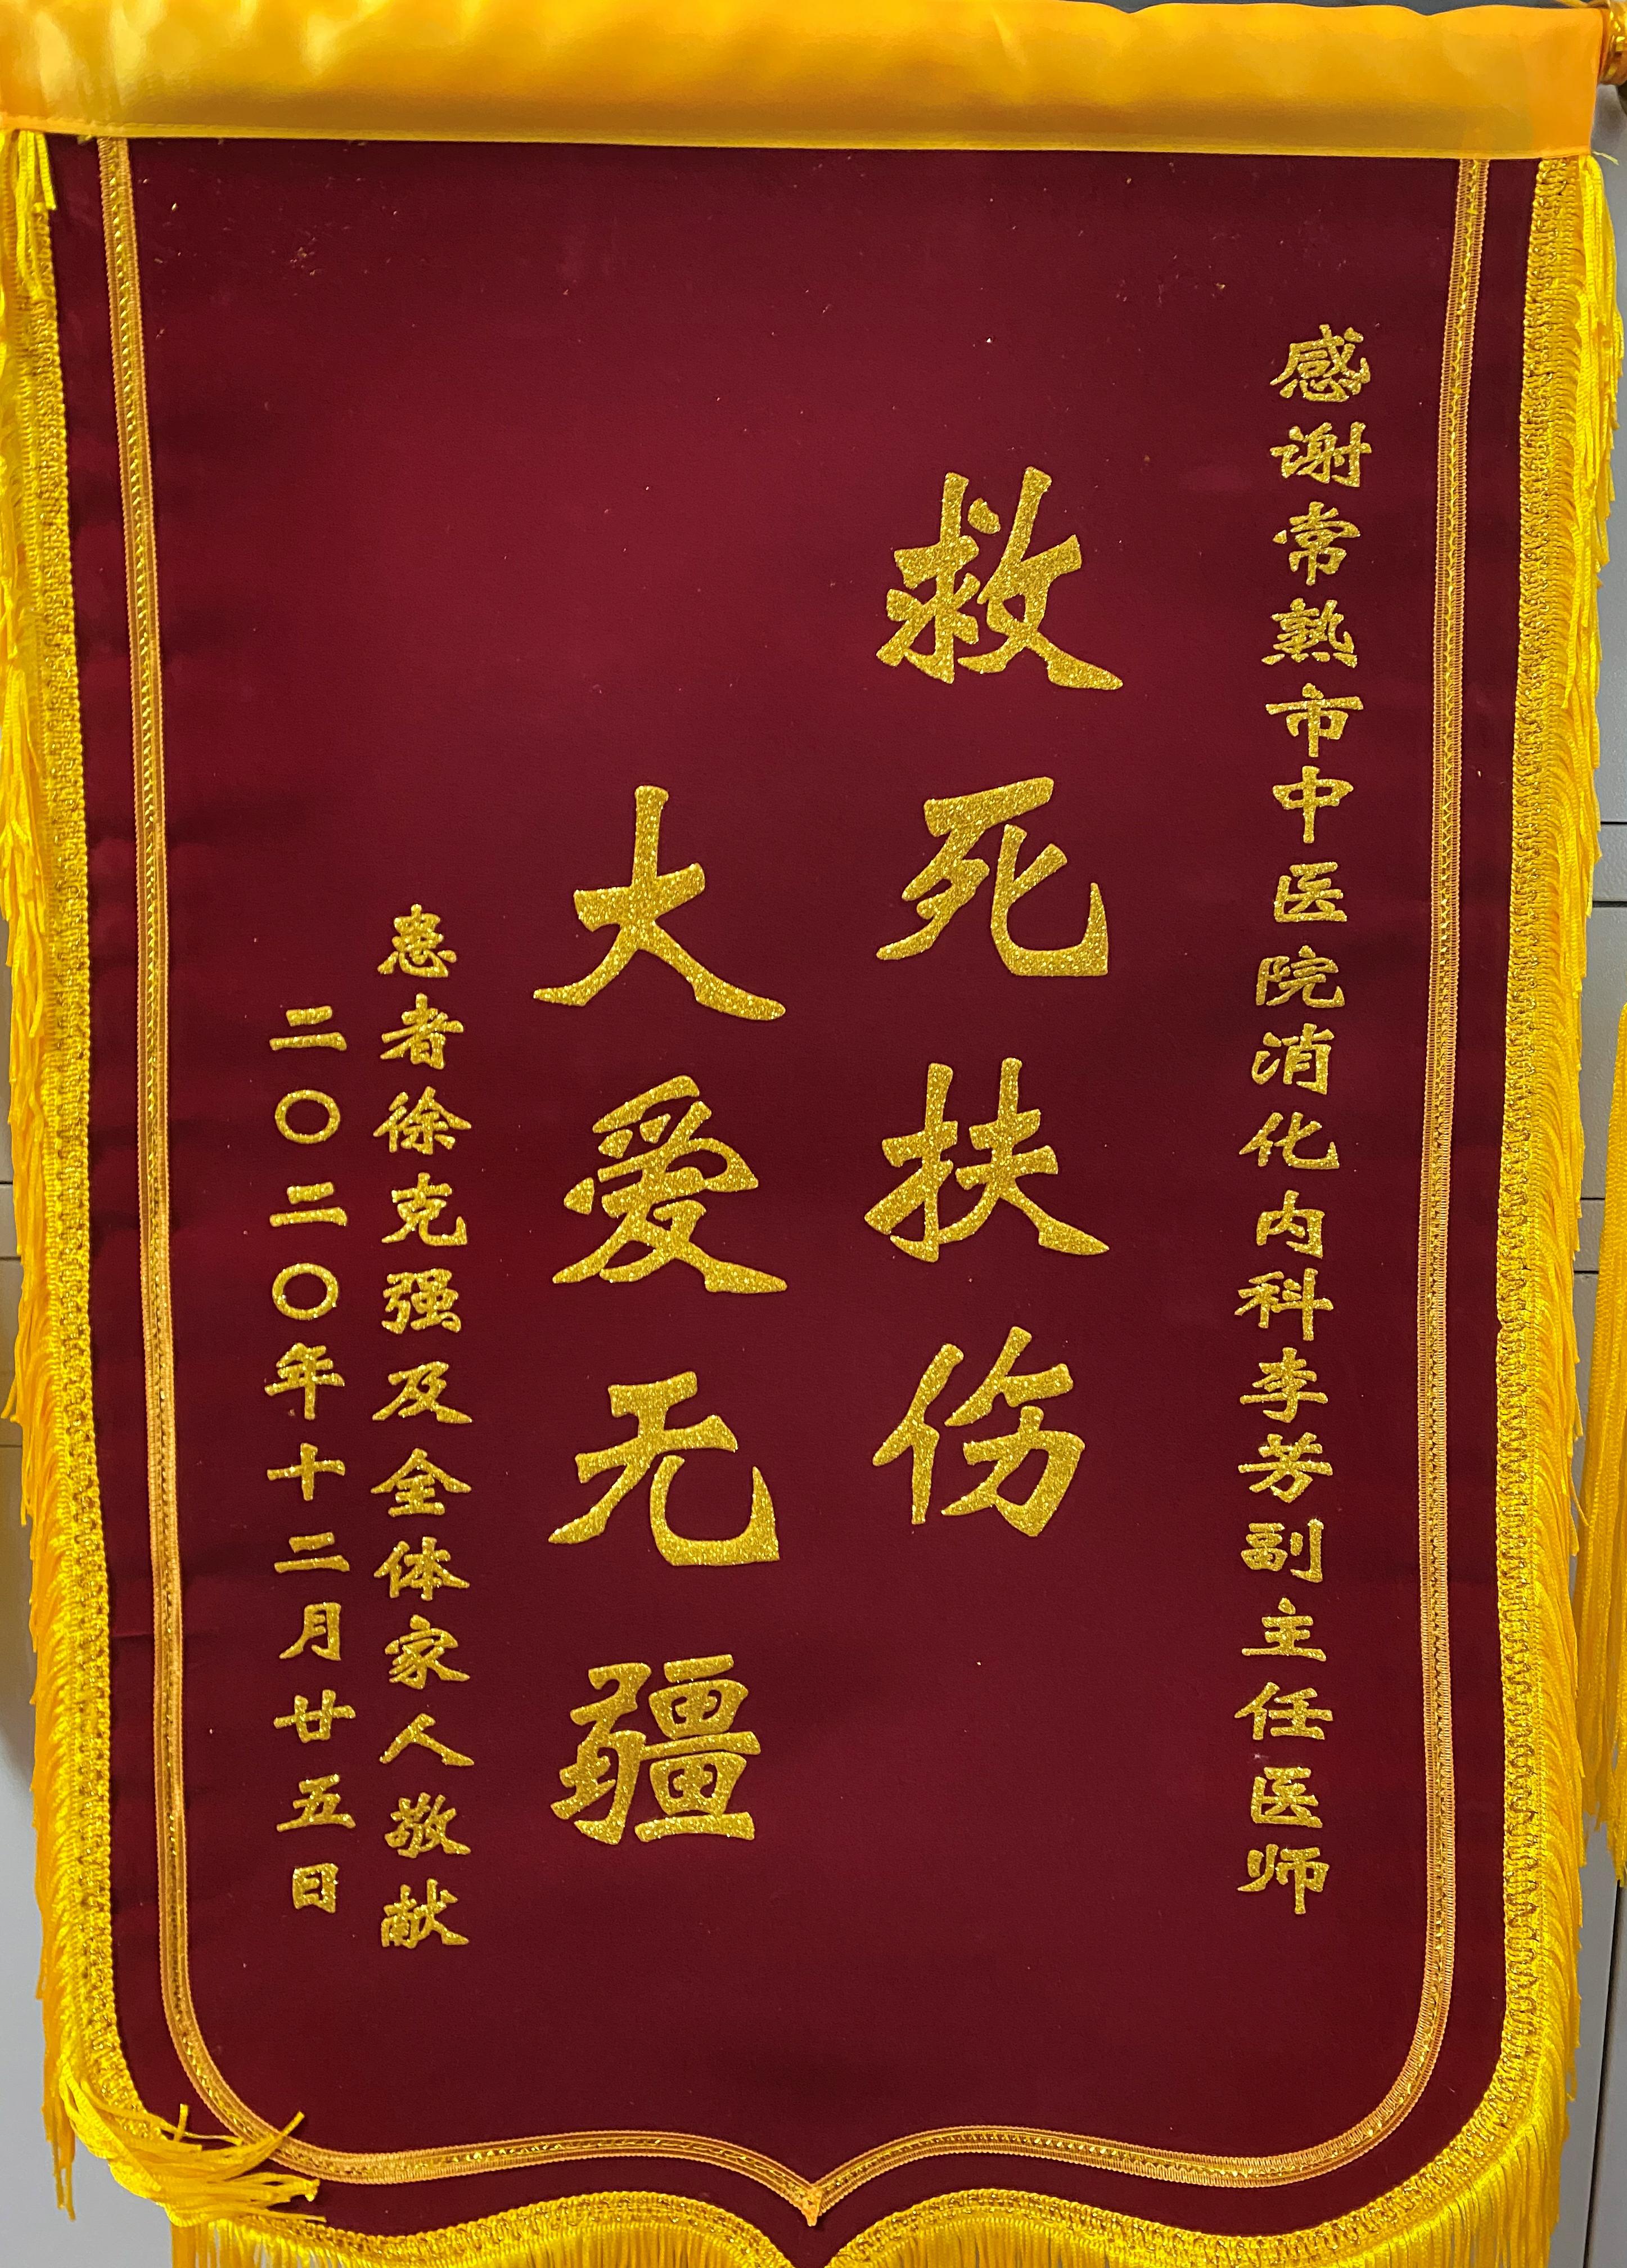 感谢常熟市中医院消化内科李芳副主任医师
救死扶伤
大爱无疆
患者徐克强及全体家人敬献
二〇二〇年十二月廿五日